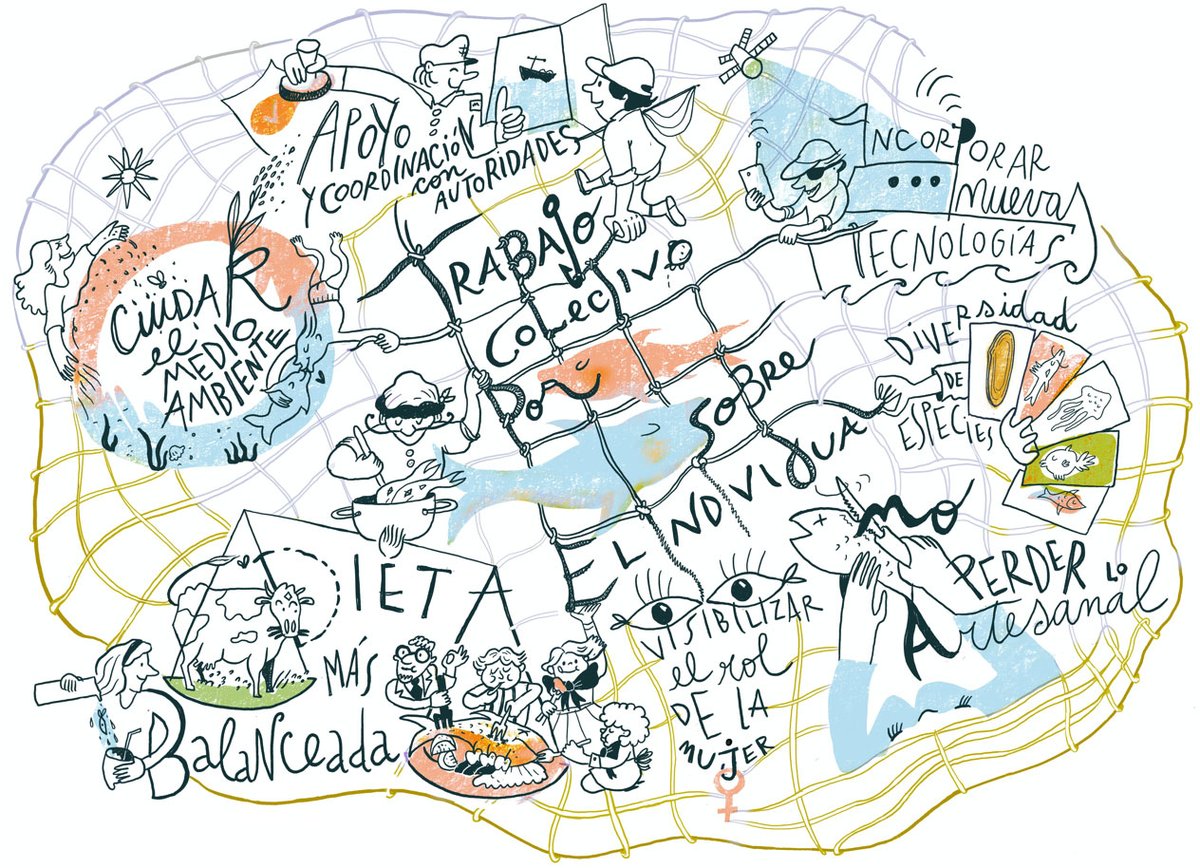 APOYO
Y COORDINACIÓN
con
AUTORIDADES
INCORPORAR
NUEVAS
TECNOLOGÍAS
CUIDAR
el
MEDIO
AMBIENTE
TRABAJO
COLECTIVO
POR SOBRE
EL INDIVIDUAL
DIVERSIDAD
DE
ESPECIES
DIETA
MÁS
BALANCEADA
VISIBILIZAR
el rol
DE LA
MUJER
NO
PERDER LO
Artesanal